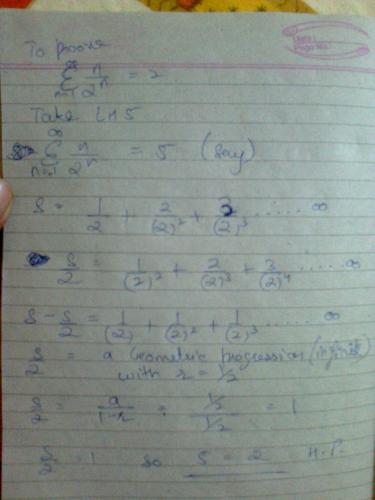 To prove
∞ Σ n=1 n/2ⁿ = 2
Take LHS
∞ Σ n=1 n/2ⁿ = S (say)
S = 1/2 + 2/(2)² + 3/(2)³ ...... ∞
S/2 = 1/(2)² + 2/(2)³ + 3/(2)⁴ ...... ∞
S - S/2 = 1/(2) + 1/(2)² + 1/(2)³ ...... ∞
S/2 = a Geometric progression (infinite)
with r = 1/2
S/2 = a/1-r = 1/2/1/2 = 1
S/2 = 1 so S = 2 H.P.